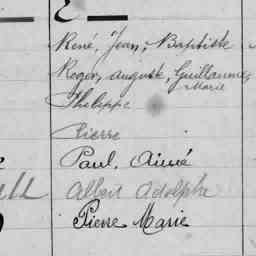 René, Jean, Baptiste
Roger, Auguste, Guillaume,
Marie
Philippe
Pierre
Paul, Aimé
Albert Adolphe
Pierre Marie